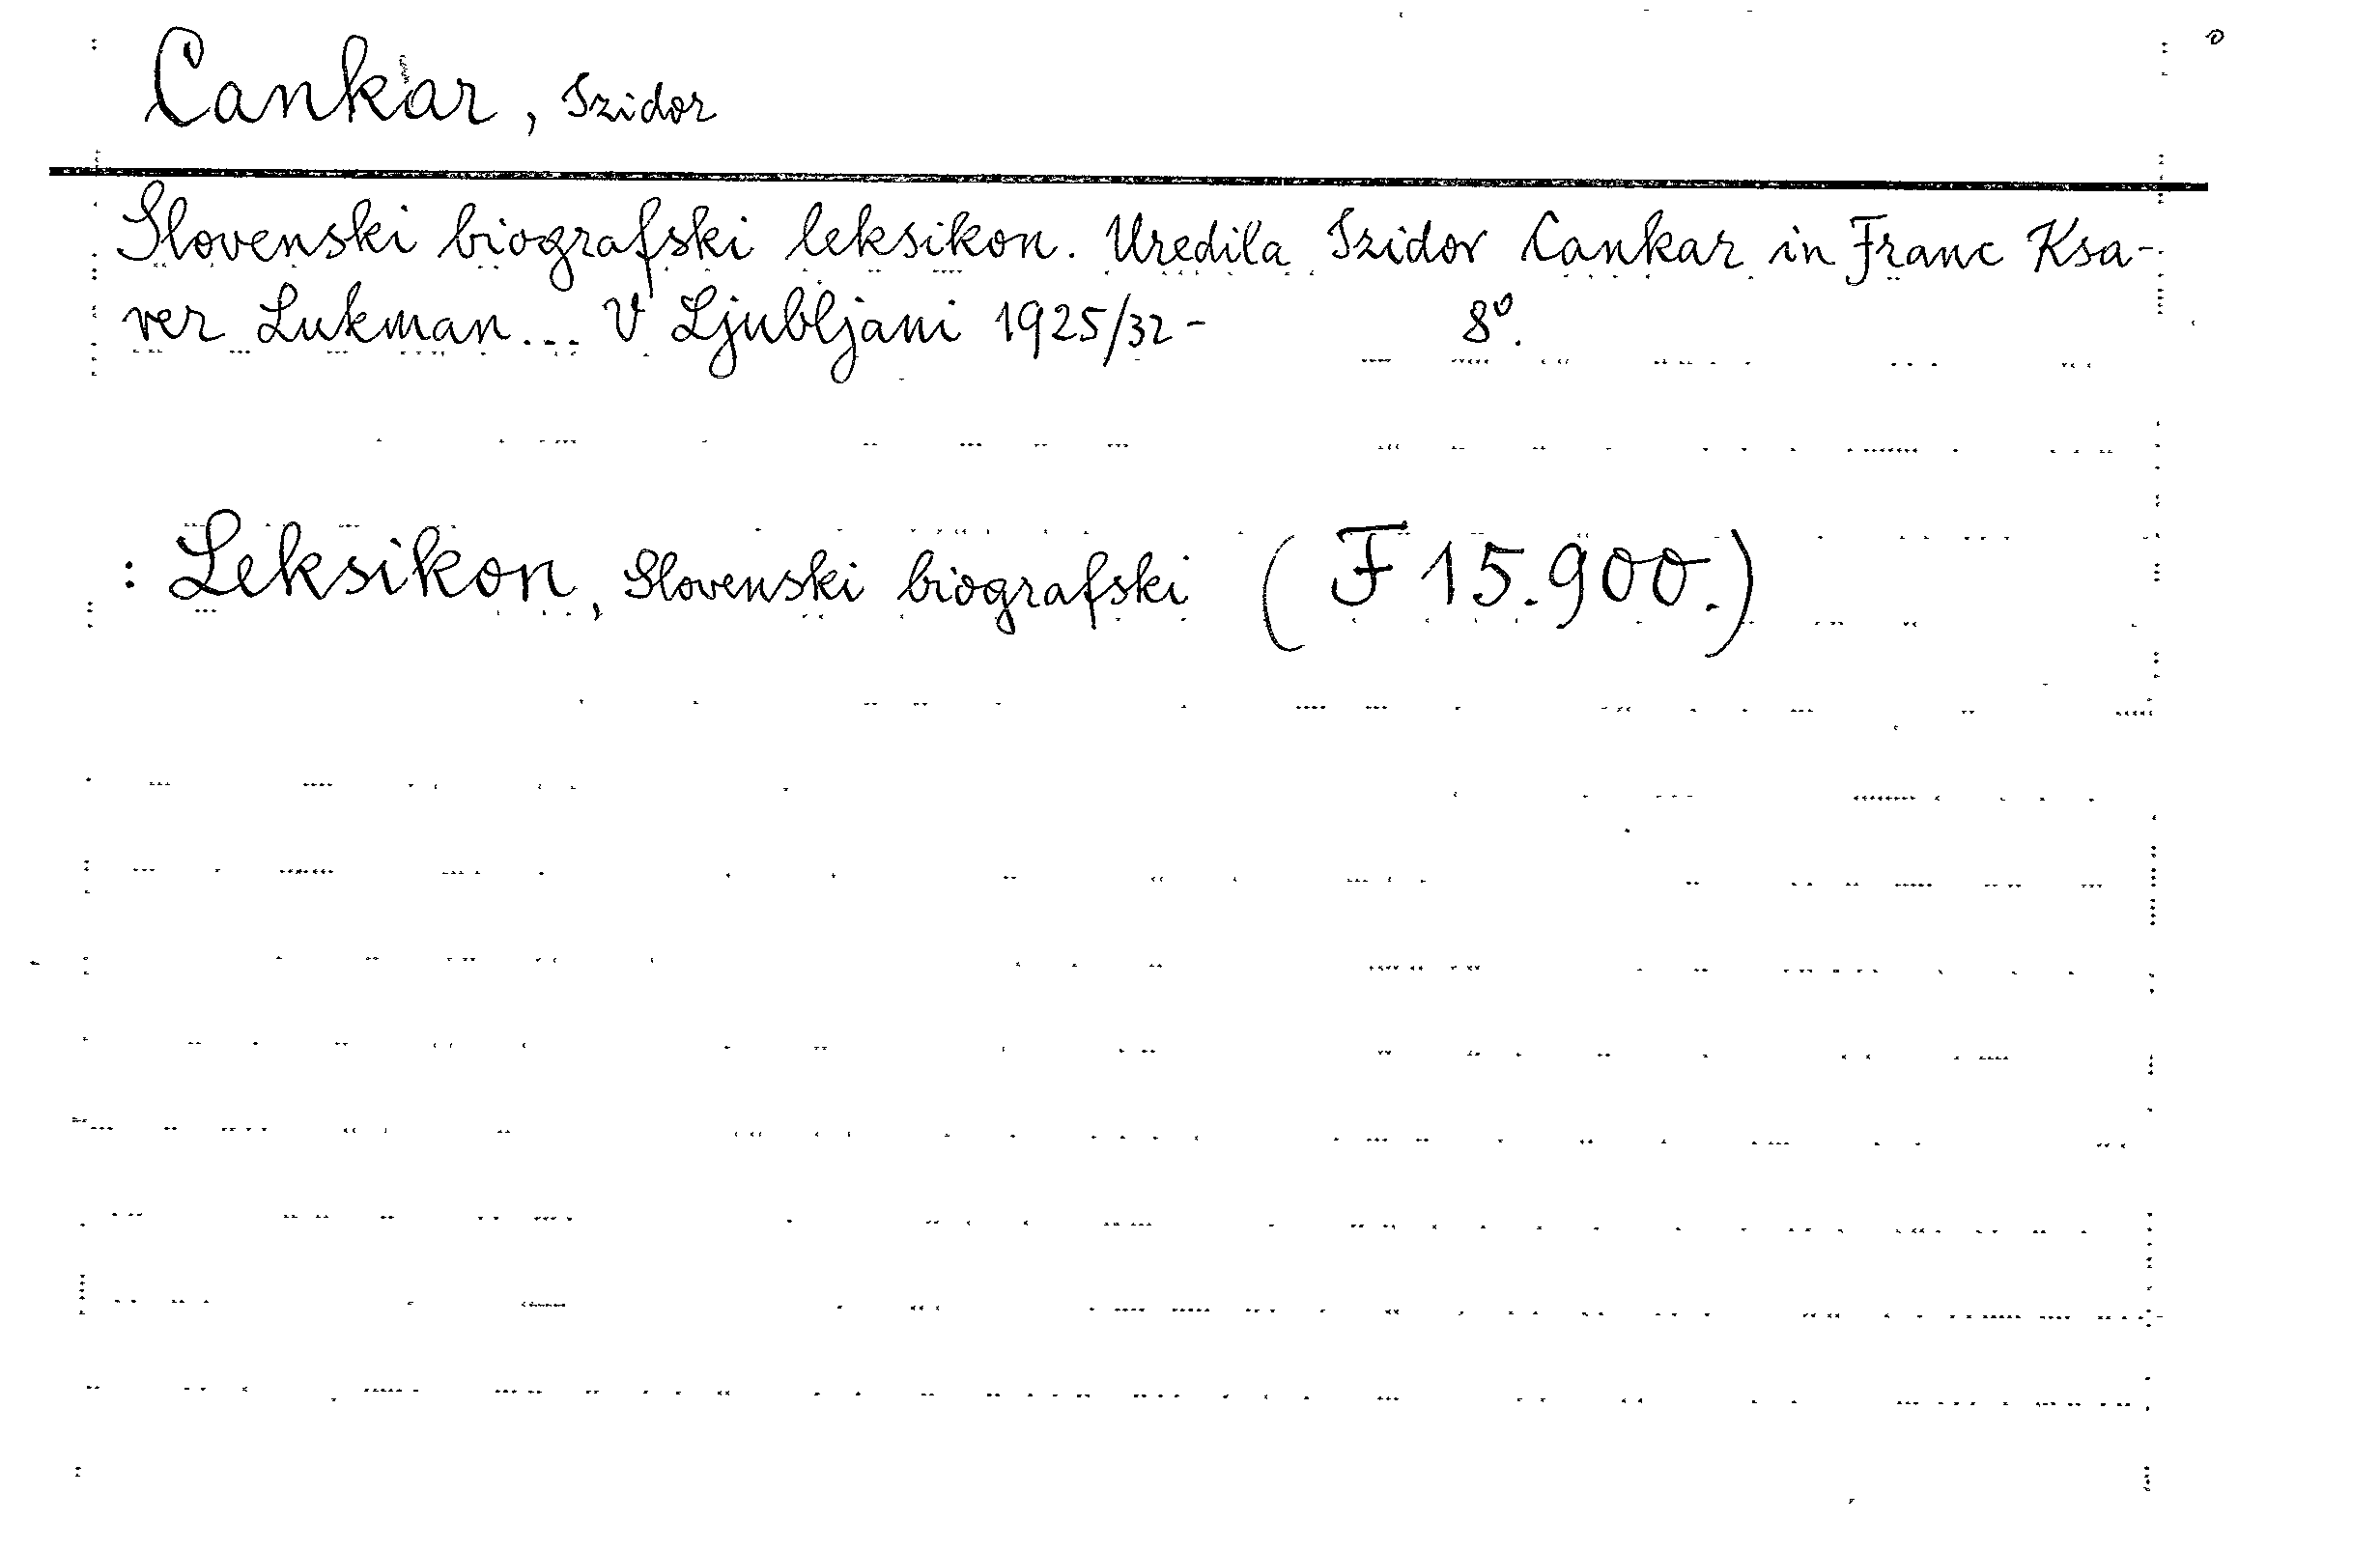 Cankar, Izidor
Slovenski biografski leksikon. Uredila Izidor Cankar in Franc Ksa-
ver Lukman... V Ljubljani 1925/32- 8º.
: Leksikon, Slovenski biografski (F 15.900.)